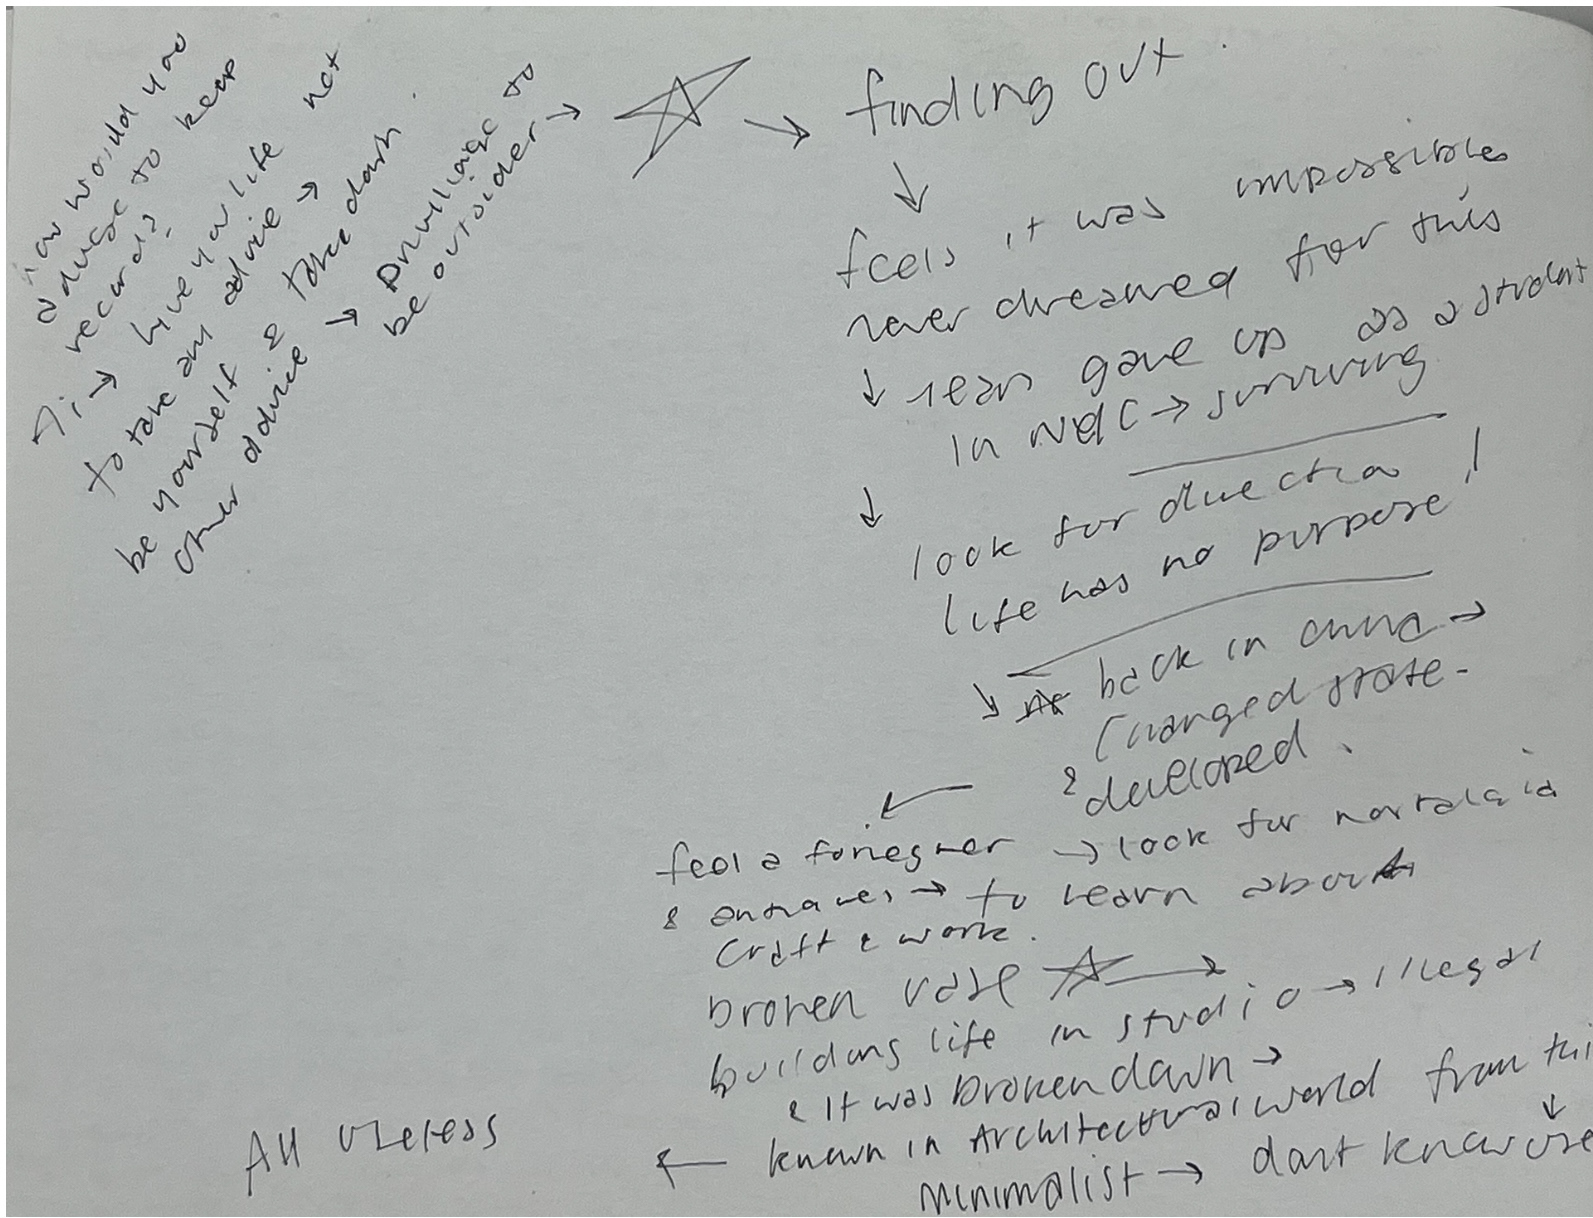 how would you
advise to keep
records?
Ai → live your life not
to take any advice →
be yourself & take down
other advice → privilege to
be outsider →
→ finding out.
↓
feels it was impossible
never dreamed for this
↓ years gave up as a student
in NYC → surviving
↓
look for direction
life has no purpose!
↓ back in china →
changed state -
& developed.
feel a foriegner → look for nostalgia
& antiques → to learn about
craft & work.
broken vase →
building life in studio → illegal
& it was broken down →
known in Architectural world from this
← minimalist → dont know use
All useless